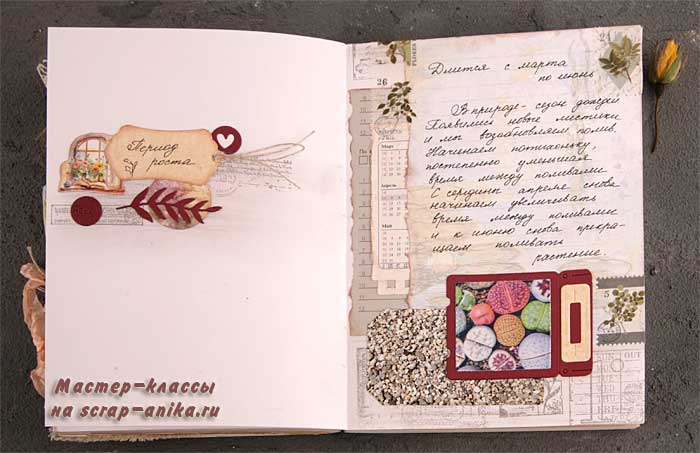 Период
роста
Март
Апрель
Май
26
24
5
Длится с марта
по июнь
В природе - сезон дождей
Появились новые листики
и мы возобновляем полив.
Начинаем потихоньку,
постепенно уменьшая
время между поливами
С середины апреля снова
начинаем увеличивать
время между поливами
и к июню снова прекра-
щаем поливать
растение.
Мастер-классы
на scrap-anika.ru